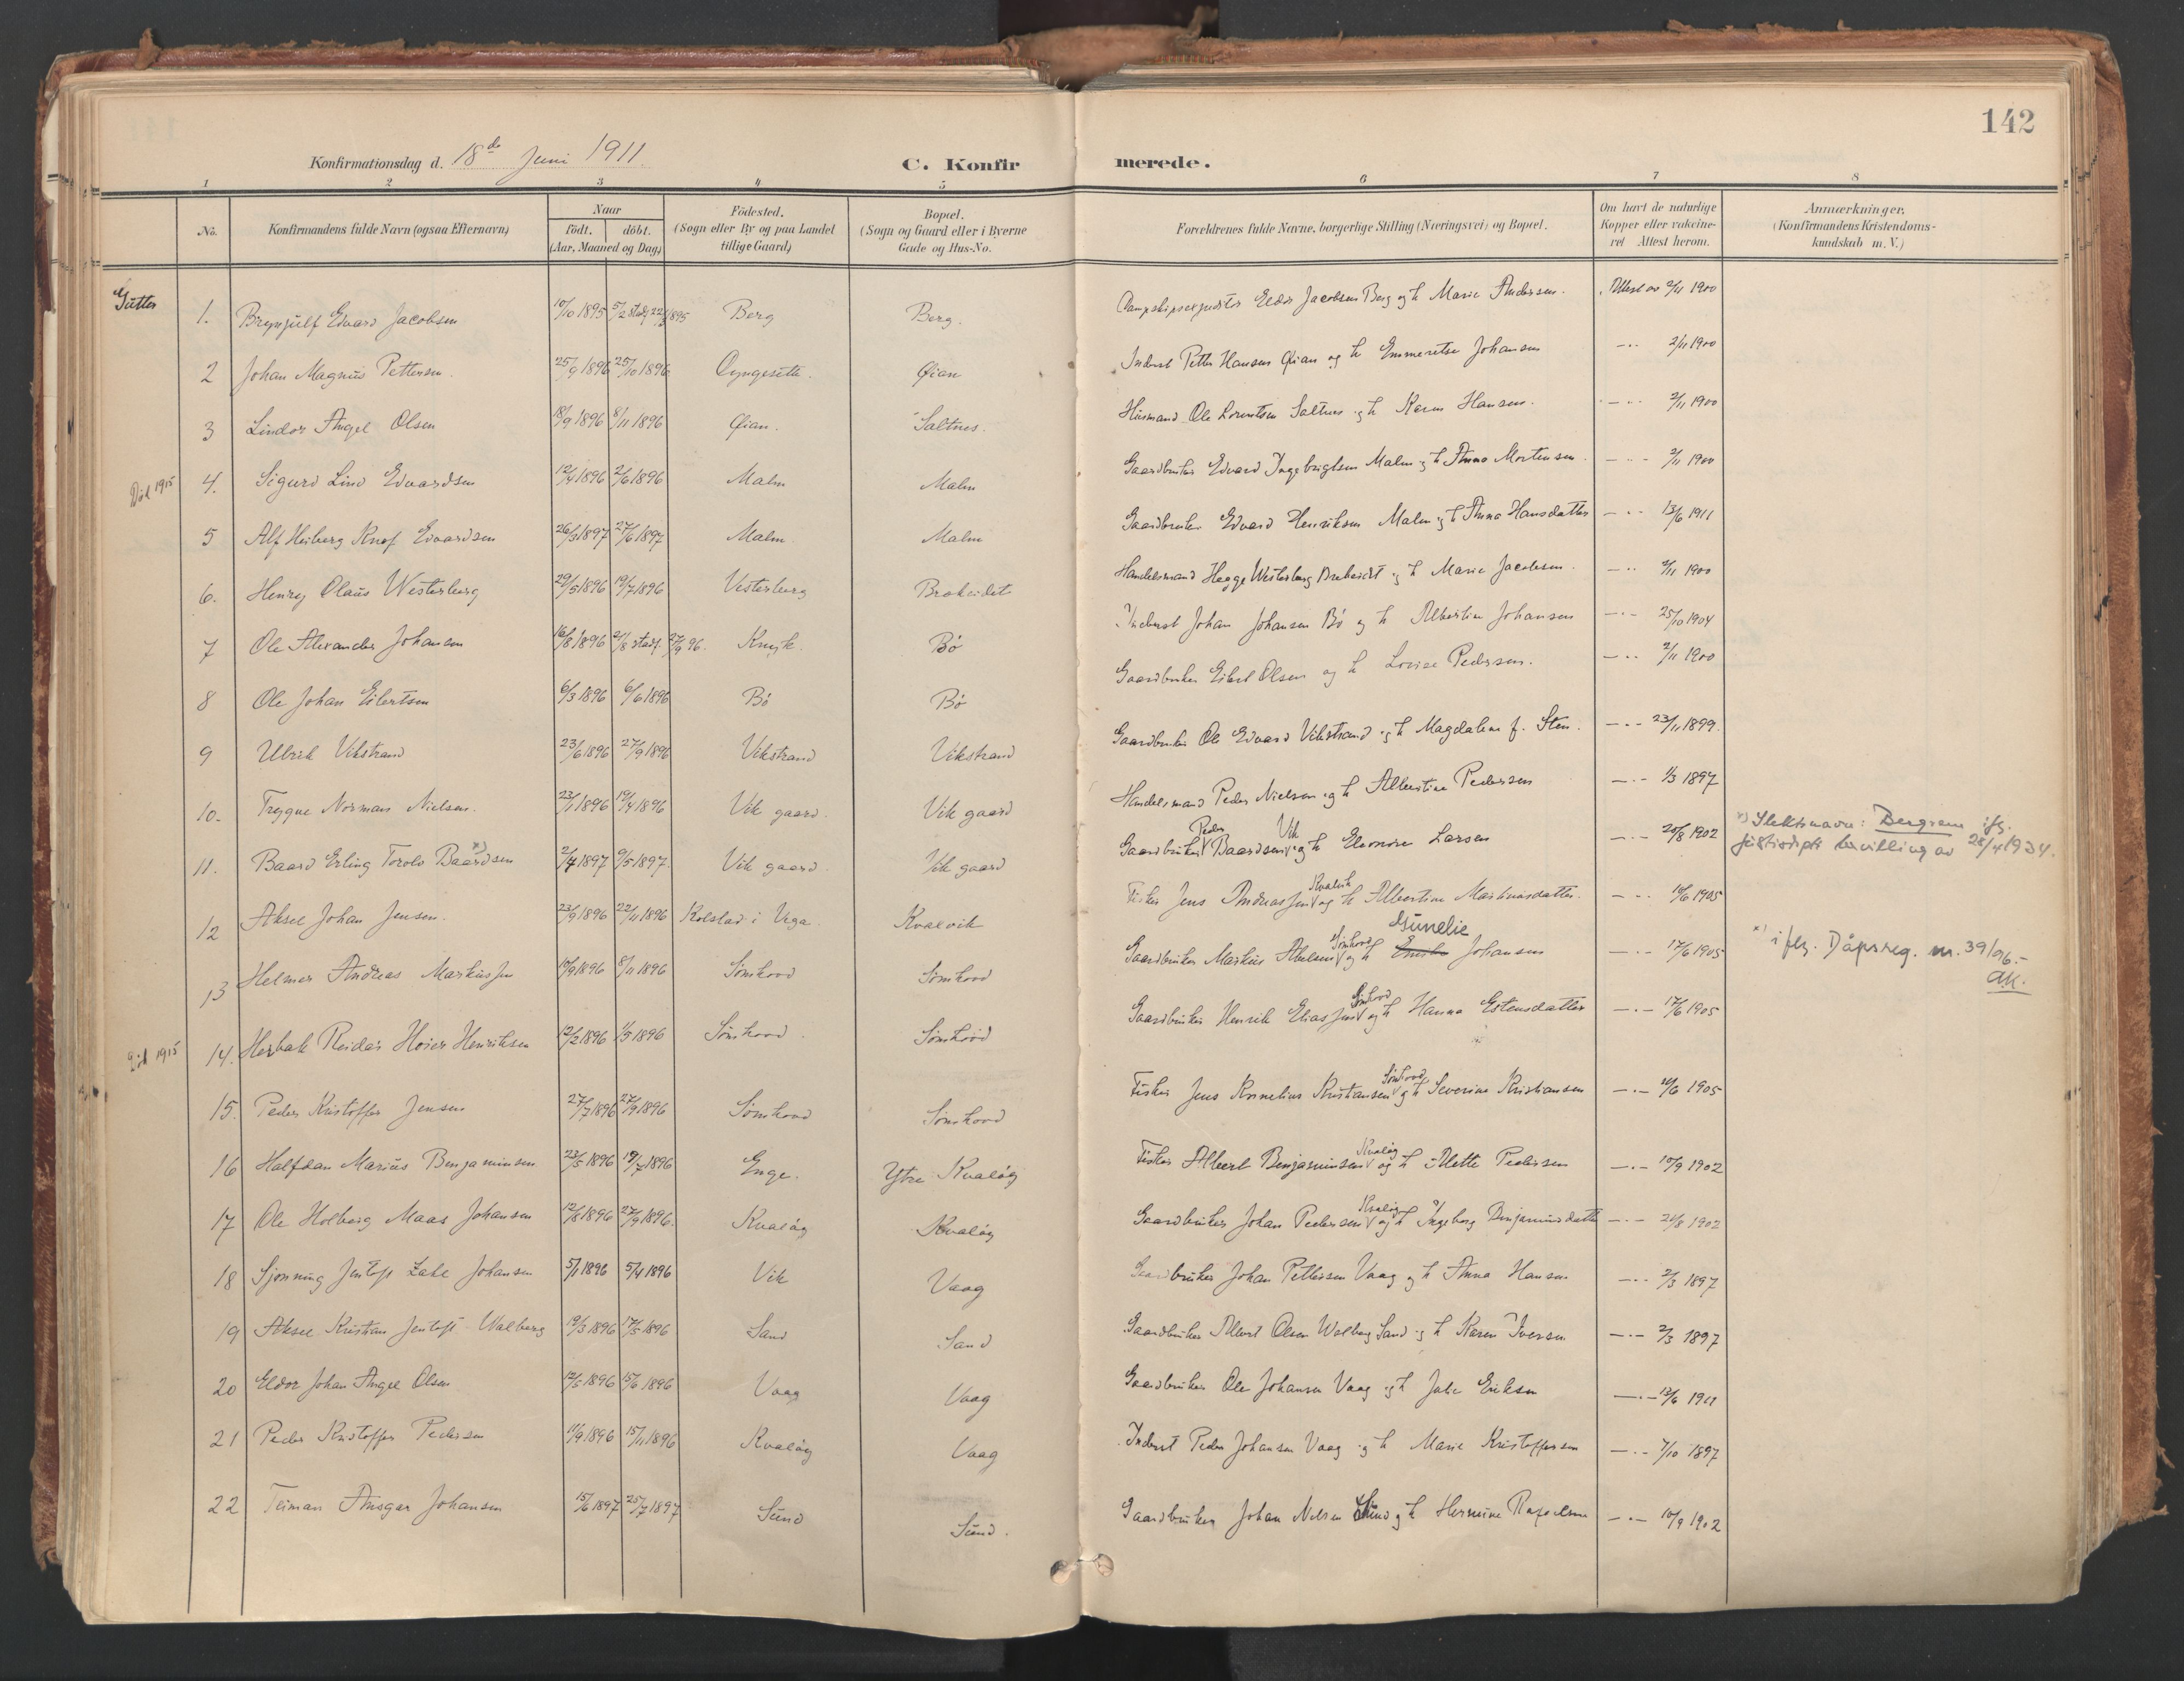 142
Konfirmationsdag d. 18de Juni 1911.
C. Konfirmerede.
1 2 3 4 5 6 7 8
No.
Konfirmandens fulde Navn (ogsaa Efternavn)
Naar
födt. döbt.
(Aar, Maaned og Dag)
Födested.
(Sogn eller By og paa Landet
tillige Gaard)
Bopæl.
(Sogn og Gaard eller i Byerne
Gade og Hus-No.
Forældrenes fulde Navne, borgerlige Stilling (Næringsvei) og Bopæl.
Om havt de naturlige
Kopper eller vakcine-
ret Attest herom.
Anmærkninger.
(Konfirmandens Kristendoms-
kundskab m. V.)
Gutter
1. Brynjulf Edvard Jacobsen 10/10 1895 5/2 stadf. 1895 Berg Berg. Dampskipsexpeditør Eldor Jacobsen Berg og h Marie Andersen. Attest av 2/11 1900
2 Johan Magnus Pettersen. 25/9 1896 25/10 1896 Øian Inderst Petter Hansen Øian og h Emmeretse Johansen -.- 2/11 1900
3 Lindor Angel Olsen 18/9 1896 8/11 1896 Øian. Saltnes. Husmand Ole Lorentsen Saltnes og h Karen Hansen. -.- 2/11 1900
Död 1915 4. Sigurd Lind Edvardsen 12/4 1896 2/6 1896 Malm Malm Gaardbruker Edvard Ingebrigtsen Malm og h Anna Mortensen. -.- 2/11 1900
5 Alf Heiberg Knof Edvardsen 26/3 1897 27/6 1897 Malm Malm Gaardbruker Edvard Henriksen Malm og h Anna Hansdatter -.- 13/6 1911
6. Henry Olaus Westerberg 29/5 1896 19/7 1896 Vesterberg Brækeidet Handelsmand Hegge Westerberg og h Marie Jacobsen. -.- 2/11 1900
7 Ole Alexander Johansen 16/8 1896 stadf. 27/9 96. Knyk. Bø Inderst Johan Johansen Bø og h Albertine Johansen -.- 25/10 1904
8 Ole Johan Eilertsen 6/3 1896 6/6 1896 Bø Bø Gaardbruker Eilert Olsen og h Lovise Pedersen. -.- 2/11 1900
9 Ulrik Vikstrand 23/6 1896 27/9 1896 Vikstrand Vikstrand Gaardbruker Ole Edvard Vikstrand og h Magdalene f. Sten. -.- 23/11 1899.
10. Trygve Norman Nielsen. 23/1 1896 19/4 1896 Vik gaard. Vik gaard Handelsmand Peder Nielsen og h Albertine Pedersen -.- 1/3 1897
11. Baard Erling Torolv Baardsen x) 2/4 1897 9/5 1897. Vik gaard. Vik gaard Gaardbruker Peder Baardsen Vik og h Eleonore Larsen -.- 20/8 1902 x) Slektsnavn: Bergrem ifg. justisdpts bevilling av 28/4 1934.
12 Aksel Johan Jensen. 23/9 1896 22/11 1896 Kolstad i Vega. Kvalvik Fisker Jens Andreas Jens Kvalvik og h Albertine Martinusdatter. -.- 16/6 1905
13 Helmer Andreas Markus Jen 10/9 1896 8/11 1896 Sømhovd Sømhovd Gaardbruker Markus Abelsen Sømhovd og h Gunelie Johansen -.- 17/6 1905 x) ifg. Dåpsreg. nr. 39/96.-
Död 1915 14. Herbak Reidar Hoier Henriksen 12/2 1896 1/5 1896 Sømhovd. Sømhovd Gaardbruker Henrik Elias Jens Sømhovd og h Hanna Estensdatter -.- 17/6 1905
15. Peder Kristoffer Jensen 27/7 1896 27/9 1896 Sømhovd Sømhovd Fisker Jens Kornelius Kristiansen Sømhovd og h Severine Kristiansen -.- 16/6 1905
16 Halfdan Marius Benjaminsen 23/5 1896 19/7 1896 Enge. Ytre Kvaløy Fisker Albert Benjaminsen Kvaløy og h Mette Pedersen -.- 10/9 1902
17 Ole Holberg Maas Johansen 12/8 1896 27/9 1896. Kvaløy Kvaløy Gaardbruker Johan Pedersen Kvaløy og h Ingeborg Benjaminsdatter -.- 21/8 1902
18 Sjonning Jentoft Zahl Johansen 5/1 1896 5/4 1896 Vik Vaag Gaardbruker Johan Pettersen Vaag og h Anna Hansen -.- 2/3 1897
19 Aksel Kristian Jentoft Walberg 19/3 1896 17/5 1896 Sand Sand Gaardbruker Albert Olsen Walberg Sand og h Karen Iversen -.- 2/3 1897
20 Eldor Johan Angel Olsen 12/5 1896 15/6 1896 Vaag Vaag Gaardbruker Ole Johansen Vaag og h Julie Eriksen -.- 13/6 1911
21 Peder Kristoffer Pedersen 11/9 1896 15/11 1896 Kvaløy Vaag Inderst Peder Johansen Vaag og h Marie Kristoffersen -.- 7/10 1897
22 Teiman Ansgar Johansen 15/6 1897 25/7 1897 Sund Sund. Gaardbruker Johan Nilsen Sund og h Hermine -.- 10/9 1902